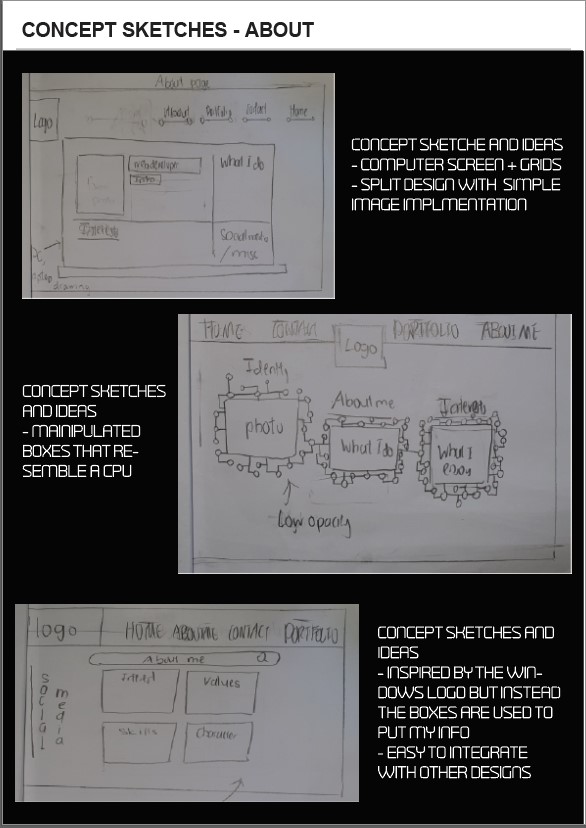 CONCEPT SKETCHES - ABOUT
About page
Logo
About
Contact
Home
What I do
Interests
Social media
/ misc
CONCEPT SKETCHE AND IDEAS
- COMPUTER SCREEN + GRIDS
- SPLIT DESIGN WITH SIMPLE
IMAGE IMPLMENTATION
HOME
Logo
PORTFOLIO
ABOUT ME
Identity
About me
Interests
photo
What I do
What I
enjoy
Low opacity
CONCEPT SKETCHES
AND IDEAS
- MAINIPULATED
BOXES THAT RE-
SEMBLE A CPU
logo
HOME ABOUT ME CONTACT PORTFOLIO
About me
social
media
Values
Skills
Character
CONCEPT SKETCHES AND
IDEAS
- INSPIRED BY THE WIN-
DOWS LOGO BUT INSTEAD
THE BOXES ARE USED TO
PUT MY INFO
- EASY TO INTEGRATE
WITH OTHER DESIGNS